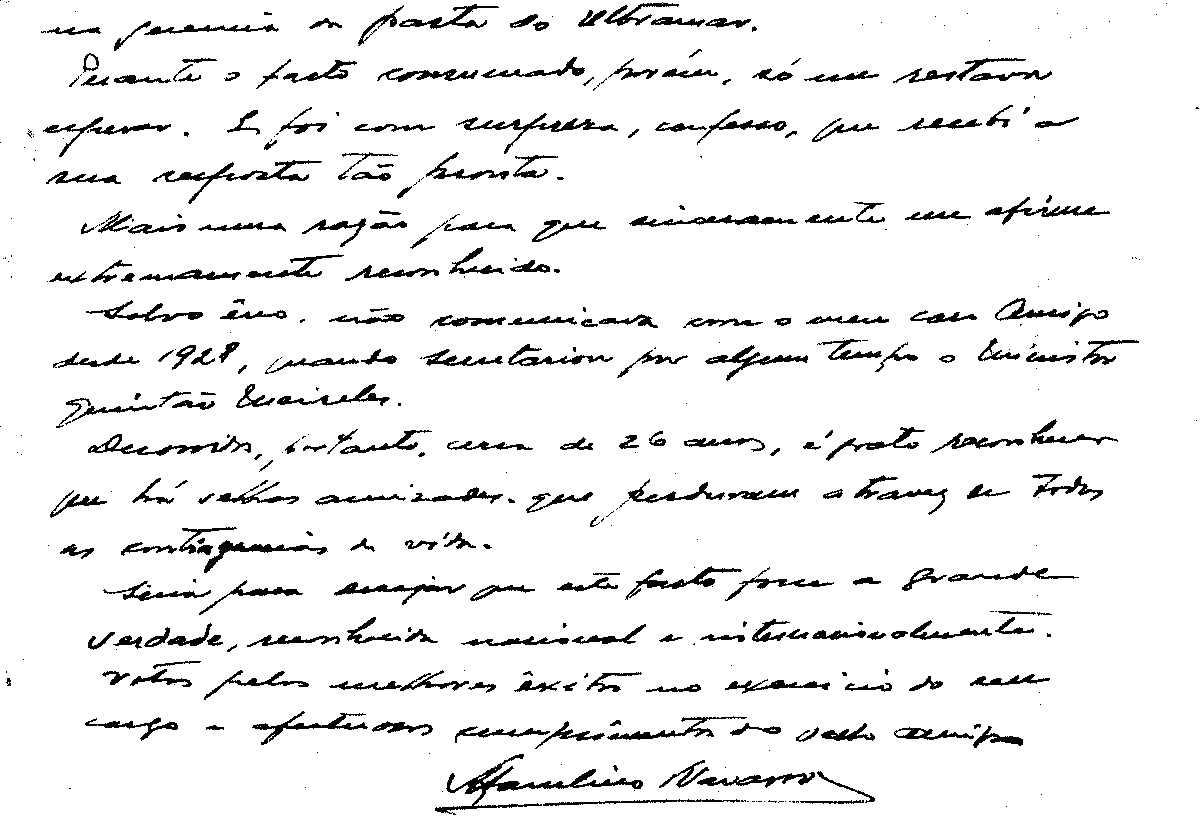 na gerencia da pasta do Ultramar.
Perante o facto consumado, porém, só me restava
esperar. E foi com surpreza, confesso, que recebi a
sua resposta tão pronta.
Mais uma razão para que sinceramente me afirme
extremamente reconhecido.
Salvo êrro, não comunicava com o meu caro Amigo
desde 1928, quando secretariou por algum tempo o Ministro
Quintão Meireles.
Decorridos, portanto, cerca de 26 anos, é grato reconhecer
que há velhas amizades que perduram atravez de todas
as contingencias da vida.
Seria para desejar que este facto fosse a grande
verdade, reconhecida nacional e internacionalmente.
Votos pelos melhores êxitos no exercicio do seu
cargo e afectuosos cumprimentos do velho amigo
Navarro